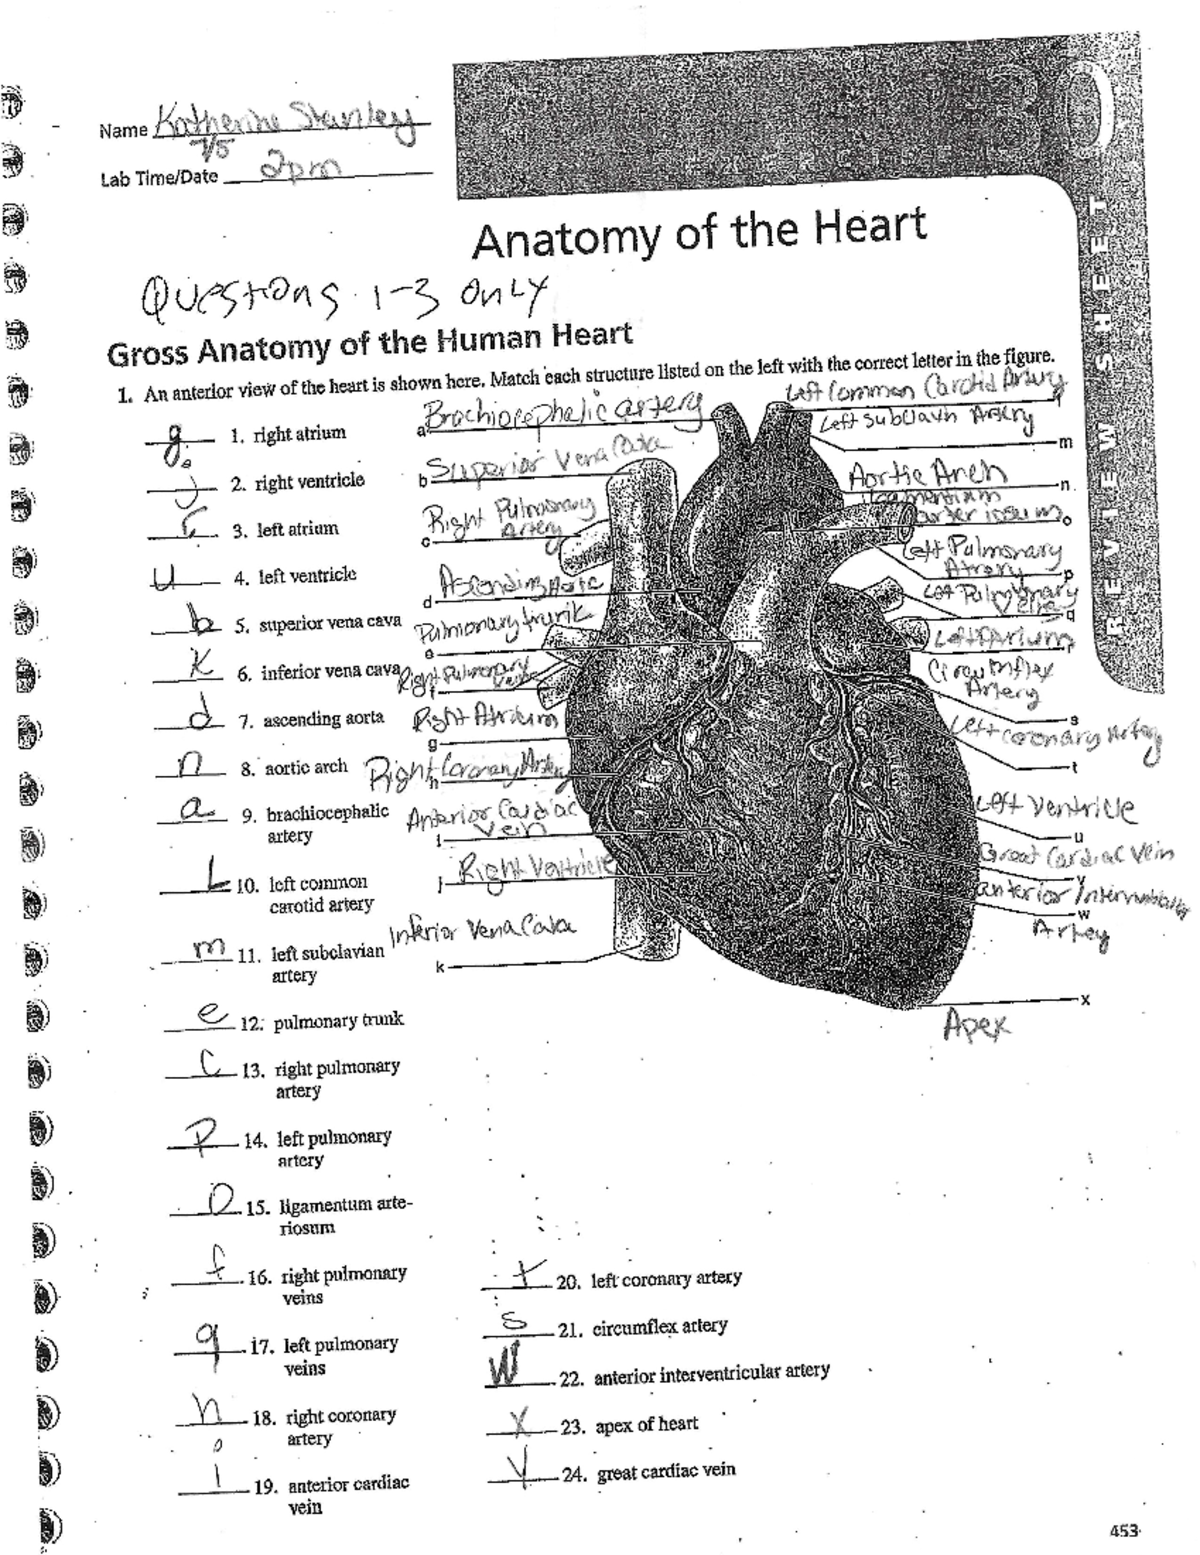 Name Katherine Stanley
7/5
Lab Time/Date 2pm
30
REVIEW SHEET
Anatomy of the Heart
Questions 1-3 ONLY
Gross Anatomy of the Human Heart
1. An anterior view of the heart is shown here. Match each structure listed on the left with the correct letter in the figure.
g. 1. right atrium
j 2. right ventricle
r 3. left atrium
u 4. left ventricle
b 5. superior vena cava
k 6. inferior vena cava
d 7. ascending aorta
n 8. aortic arch
a 9. brachiocephalic
artery
L 10. left common
carotid artery
m 11. left subclavian
artery
e 12. pulmonary trunk
c 13. right pulmonary
artery
p 14. left pulmonary
artery
O 15. ligamentum arte-
riosum
f 16. right pulmonary
veins
q 17. left pulmonary
veins
h 18. right coronary
artery
i 19. anterior cardiac
vein
a Brachiocephalic artery
b Superior Vena Cava
Right Pulmonary
c Artery
d Ascending Aorta
Pulmonary trunk
e
Right Pulmonary
f
Right Atrium
g
Right Coronary Artery
h
Anterior Cardiac
i vein
j Right Ventricle
Inferior Vena Cava
k
Left Common Carotid Artery
l
Left Subclavn Artery
m
Aortic Arch
n
arteriosum o
Left Pulmonary
Atrery p
Left Pulmonary
q
Left Atrium r
Circumflex
Artery
s
Left coronary Artery
t
Left Ventricle
u
Great Cardiac Vein
v
anterior
w
Artey
x
Apex
t 20. left coronary artery
s 21. circumflex artery
W 22. anterior interventricular artery
X 23. apex of heart
V 24. great cardiac vein
453